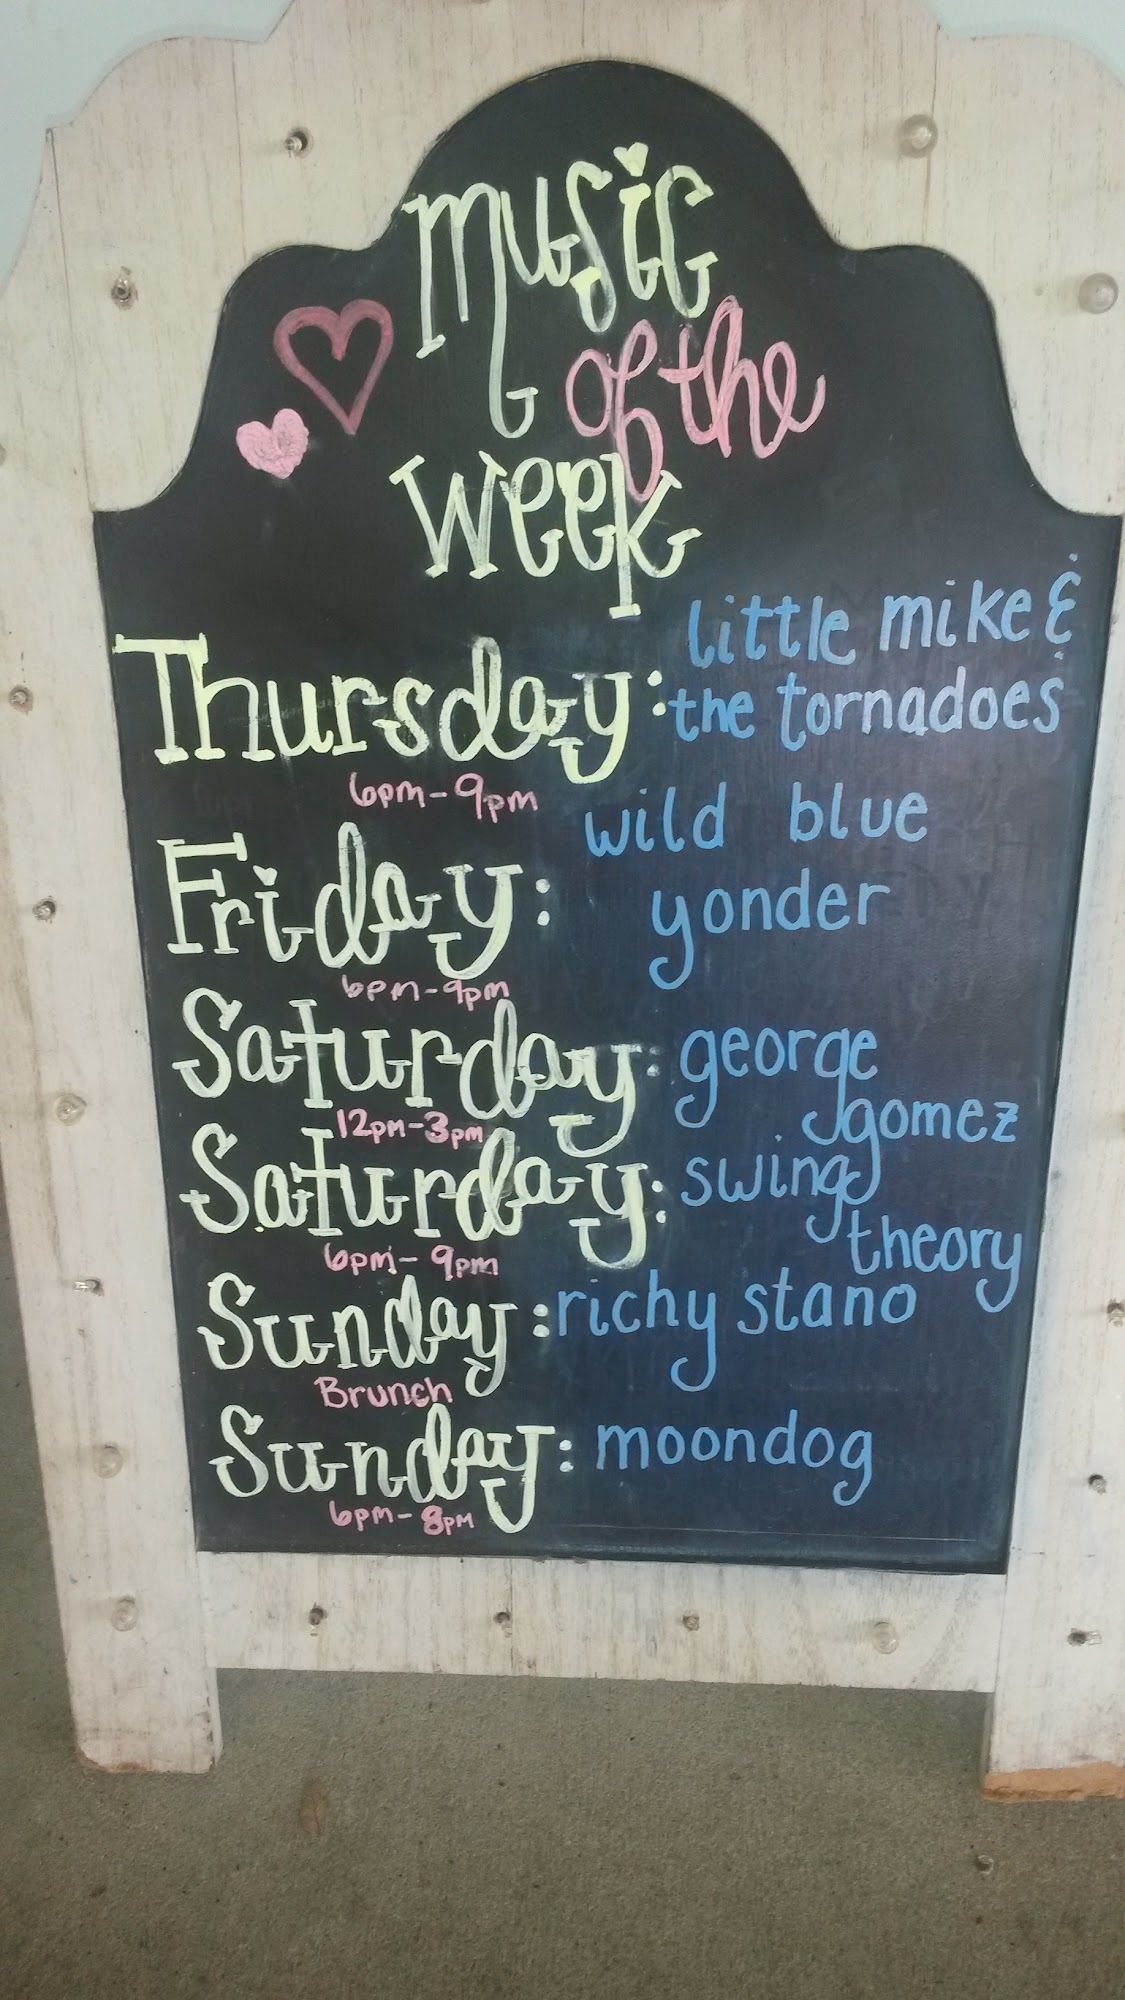 music
of the
week
Thursday: little mike &
the tornadoes
6pm-9pm
Friday: wild blue
yonder
6pm-9pm
Saturday: george
gomez
12pm-3pm
Saturday: swing
theory
6pm-9pm
Sunday: richy stano
Brunch
Sunday: moondog
6pm-8pm